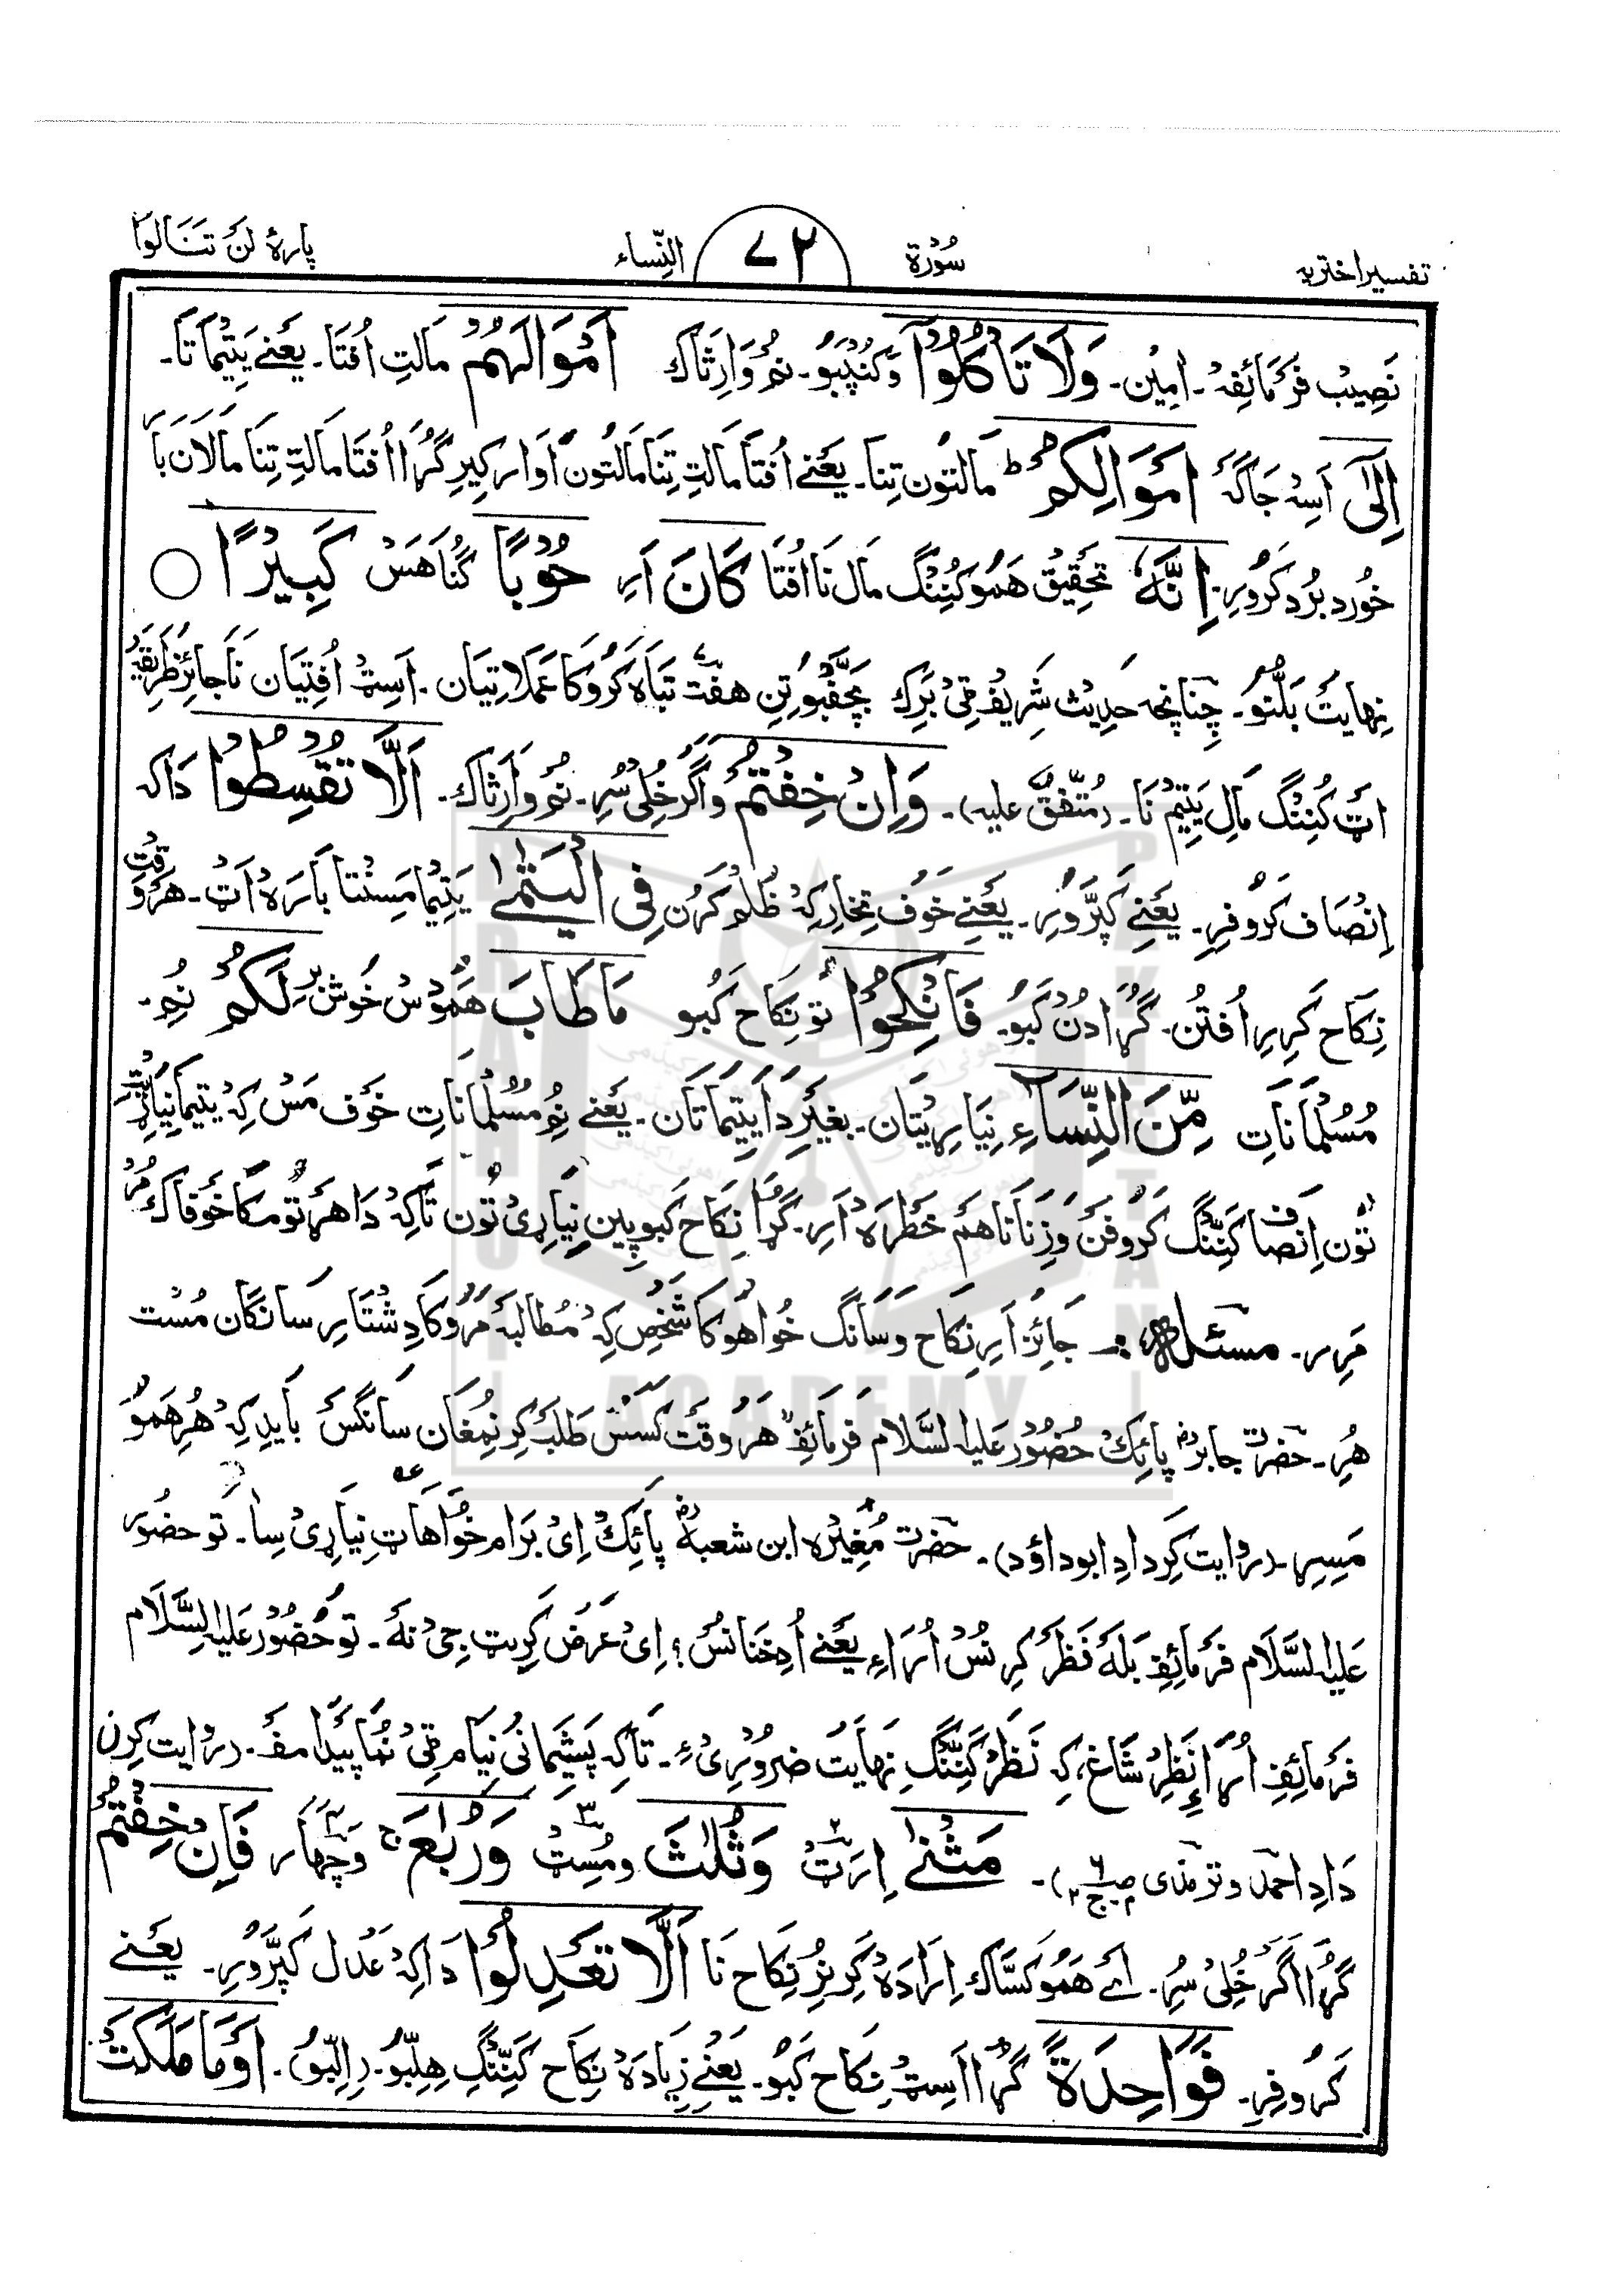 تفسیر اختریہ سُوْرَة ۷۲ النِّساء پارهٔ لَنْ تَنَالُوا ۴
نَصِیب فَرَمائِفہ۔ اٰمِیْن۔ وَلَا تَأْكُلُوْۤا وَکُنْپَبَوْ۔ نُم وَارِثَاک اَمْوَالَهُمْ مَالتِ اُفتَا۔ یَعْنِے یَتِیْمَاتَا۔
اِلٰۤى اَسِہ جَاگَہ اَمْوَالِكُمْ ؕ مَالتُون تِنا۔ یَعْنِے اُفتَا مَالتِ تِنَا مَالتُون اَوار کِیرِ گُڑا اُفتَا مَالتِ تِنَا مَالَان بَار
خُورد بُرد کَرورِ۔ اِنَّهٗ تَحْقِیْق هَمُو کُنِنْگ مَال نَا اُفتَا كَانَ اَرِ حُوْبًا گُنَاهَسْ كَبِیْرًا ○
نِهایَتْ بَلُّنُو۔ چِنَانچہ حَدِیْث شَرِیْف ٹِیْ بَرَک بَچِّفْبُو تِنِ هفتؔ تَبَاہ کَرُوکَا عَمَلَاتِیَان۔ اَسِٹْ اُفتِیَان نَاجَائِز طَرِیقہ
اٹ کُنِنْگ مَالِ یَتِیْم نَا۔ (مُتَّفَقٌ علیه)۔ وَاِنْ خِفْتُمْ وَ اَگَر خُلِیْ سُرِ۔ نُم وَارِثَاک۔ اَلَّا تُقْسِطُوْا دَاکہ
اِنْصَاف کَروفرِ۔ یَعْنِے کَپَّرورِ۔ یَعْنِے خَوْف تخارِکہ ظُلْم کَرُن فِی الْیَتٰمٰى یَتِیْمَا مَسِنْتَا بَارَہ اَٹْ۔ هَروَقت
نِکَاح کَرِیرِ اُفتُن۔ گُڑا دُنْ کَبو۔ فَانْكِحُوْا تو نِکَاح کَبو مَا طَابَ هَمُوسْ خَوش بَرِ لَكُمْ نُم۔
مُسُلْمَانَاتِ مِّنَ النِّسَآءِ نِیَاڑِیْتَان۔ بِغَیْر دَا یَتِیْمَاتَان۔ یَعْنِے نُم مُسُلْمَانَاتِ خَوْف مَسْ کِہ یَتِیْمَا نِیَاڑِیْتے
تُون اِنْصَاف کَنِّنْگ کَروفَن وَ زِنَا نَا هَم خَطَرَہ اَرِ۔ گُڑا نِکَاح کَبو پِین نِیَاڑِیْ تُون تَاکِہ دَا هَر تُومَکَا خَوفَاک مُر
مَرِر۔ مسئلہ :۔ جَائِز اَرِ نِکَاح وَ سَانگ خُواهُوکَا شَخْص کِہ مُطَالبَہ مَرُوکَا دِشْتَارِ سَانگان مُسْت
هُرِ۔ حضرت جابرؓ پائک حُضُوْر عَلَیْہ السَّلَام فَرمَائِفہ هَر وَقْت کَسَسْ طَلَب کِر نُمغَان سَانگسْ بَایدِ کِہ هُرِ هَمُو
مَسِڑِ۔ (روایت کَرِ دادِ ابوداؤد)۔ حضرت مُغِیْرَہ ابن شعبہؓ پَائِک اِیْ بَرَام خُواهَاٹ نِیَاڑِیْ سِا۔ تَو حضُوْر
عَلَیْہ السَّلَام فَرمَائِفہ بَلَہ نَظَر کِرِنُسْ اُڑَاءِ یَعْنِے اُدِ خَنَانُسْ؟ اِیْ عَرَض کَرِیٹ جِیْ نَہ۔ تو حُضُوْر عَلَیْہ السَّلَام
فَرمَائِفہ اُڑَاءِ نَظِرْ شَاغ، کِہ نَظَرْ کَنِّنْگ نِهَایَت ضَرُوْرِیْءِ۔ تَاکِہ پَشِیْمَانِی نِیَام ٹِیْ نُمَا پَیْدَا مَفَ۔ (روایت کرِن
دَادِ احمد و ترمذی)۔ مَثْنٰى اِرَٹ وَثُلٰثَ و مُسِٹ وَرُبٰعَ ۚ وَچَهَار فَاِنْ خِفْتُمْ
گُڑا اَگَر خُلِیْ سُرِ۔ اے هَمُو کَسَّاک اِرَادَہ کَرِیرِ نِکَاح نَا اَلَّا تَعْدِلُوْا دَاکِہ عَدْل کَپَّرورِ۔ یَعْنِے
کَروفِرِ۔ فَوَاحِدَةً گُڑا اَسِٹْ نِکَاح کَبو۔ یَعْنِے زِیَادَہ نِکَاح کَنِّنْگِ هِلِّبو۔ (اِلّبو)۔ اَوْ مَا مَلَكَتْ